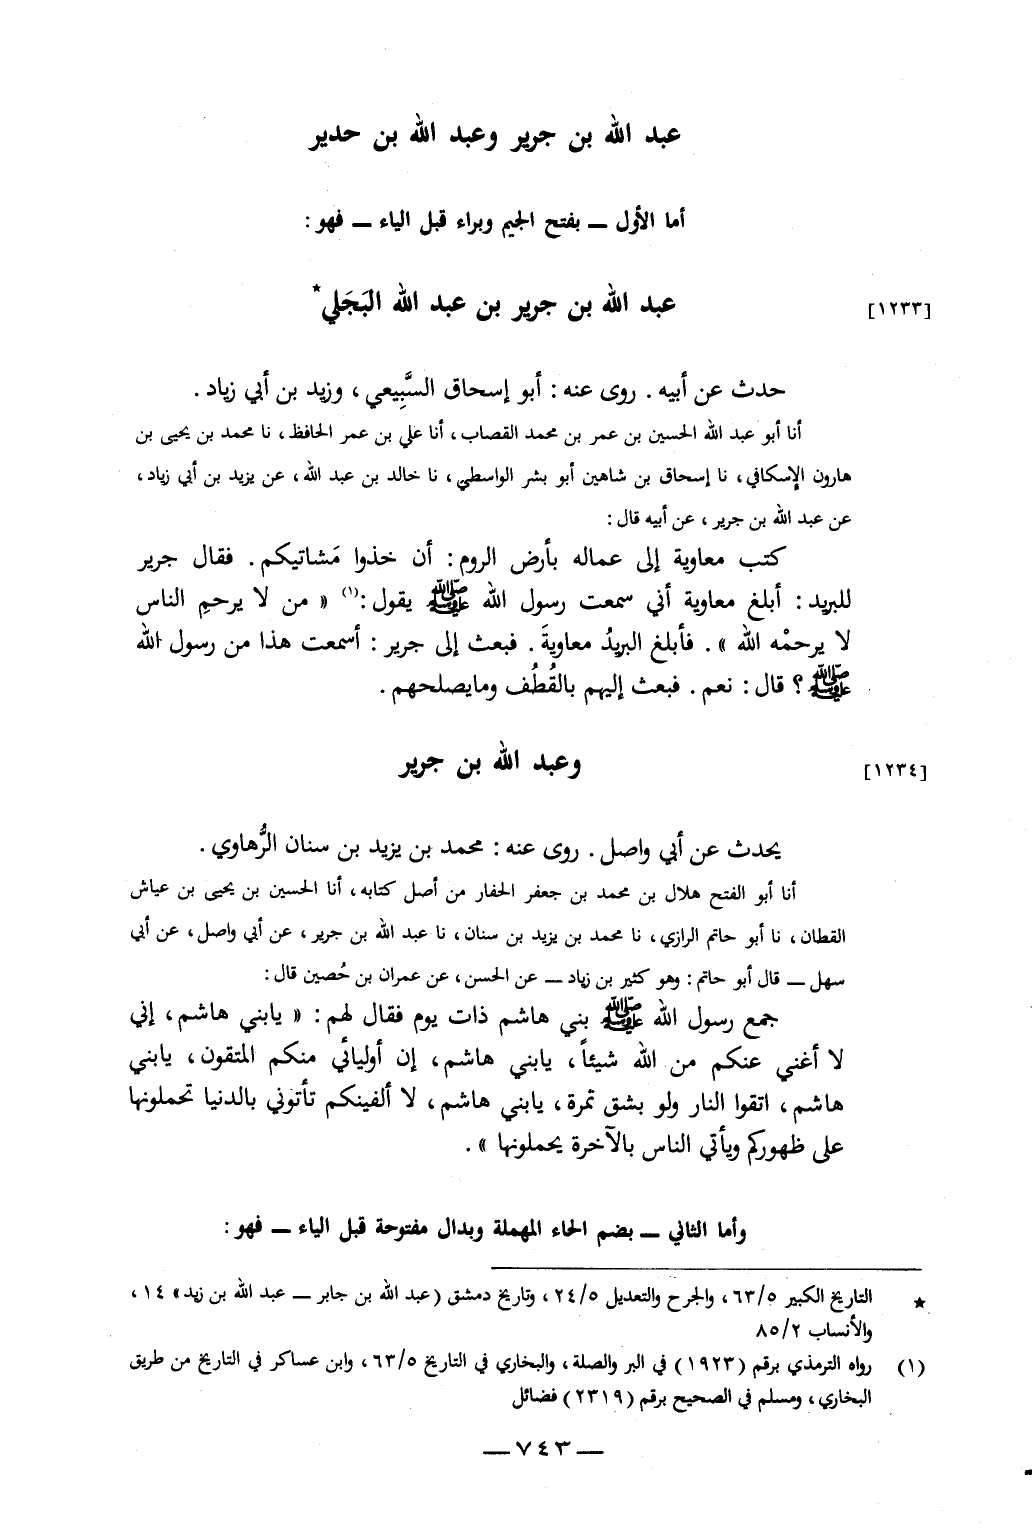 عبد الله بن جرير وعبد الله بن حدير
أما الأول ــ بفتح الجيم وبراء قبل الياء ــ فهو :
[١٢٣٣] عبد الله بن جرير بن عبد الله البَجَلي*
حدث عن أبيه . روى عنه : أبو إسحاق السَّبِيعي ، وزيد بن أبي زياد .
أنا أبو عبد الله الحسين بن عمر بن محمد القصاب ، أنا علي بن عمر الحافظ ، نا محمد بن يحيى بن
هارون الإسكافي ، نا إسحاق بن شاهين أبو بشر الواسطي ، نا خالد بن عبد الله ، عن يزيد بن أبي زياد ،
عن عبد الله بن جرير ، عن أبيه قال :
كتب معاوية إلى عماله بأرض الروم : أن خذوا مَشاتيكم . فقال جرير
للبريد : أبلغ معاوية أني سمعت رسول الله ﷺ يقول :(١) « من لا يرحمِ الناس
لا يرحمْه الله » . فأبلغ البريدُ معاويةَ . فبعث إلى جرير : أسمعت هذا من رسول الله
ﷺ ؟ قال : نعم . فبعث إليهم بالقُطُف ومايصلحهم .
[١٢٣٤] وعبد الله بن جرير
يحدث عن أبي واصل . روى عنه : محمد بن يزيد بن سنان الرُّهاوي .
أنا أبو الفتح هلال بن محمد بن جعفر الحفار من أصل كتابه ، أنا الحسين بن يحيى بن عياش
القطان ، نا أبو حاتم الرازي ، نا محمد بن يزيد بن سنان ، نا عبد الله بن جرير ، عن أبي واصل ، عن أبي
سهل ــ قال أبو حاتم : وهو كثير بن زياد ــ عن الحسن ، عن عمران بن حُصين قال :
جمع رسول الله ﷺ بني هاشم ذات يوم فقال لهم : « يابني هاشم ، إني
لا أغني عنكم من الله شيئاً ، يابني هاشم ، إن أوليائي منكم المتقون ، يابني
هاشم ، اتقوا النار ولو بشق تمرة ، يابني هاشم ، لا ألفينكم تأتوني بالدنيا تحملونها
على ظهوركم ويأتي الناس بالآخرة يحملونها » .
وأما الثاني ــ بضم الحاء المهملة وبدال مفتوحة قبل الياء ــ فهو :
★ التاريخ الكبير ٦٣/٥ ، والجرح والتعديل ٢٤/٥ ، وتاريخ دمشق (عبد الله بن جابر ــ عبد الله بن زيد» ١٤ ،
والأنساب ٨٥/٢
(١) رواه الترمذي برقم (١٩٢٣) في البر والصلة ، والبخاري في التاريخ ٦٣/٥ ، وابن عساكر في التاريخ من طريق
البخاري ، ومسلم في الصحيح برقم (٢٣١٩) فضائل
ــ ٧٤٣ ــ